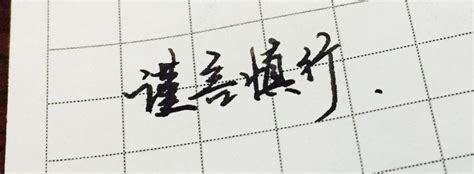 谨言慎行.